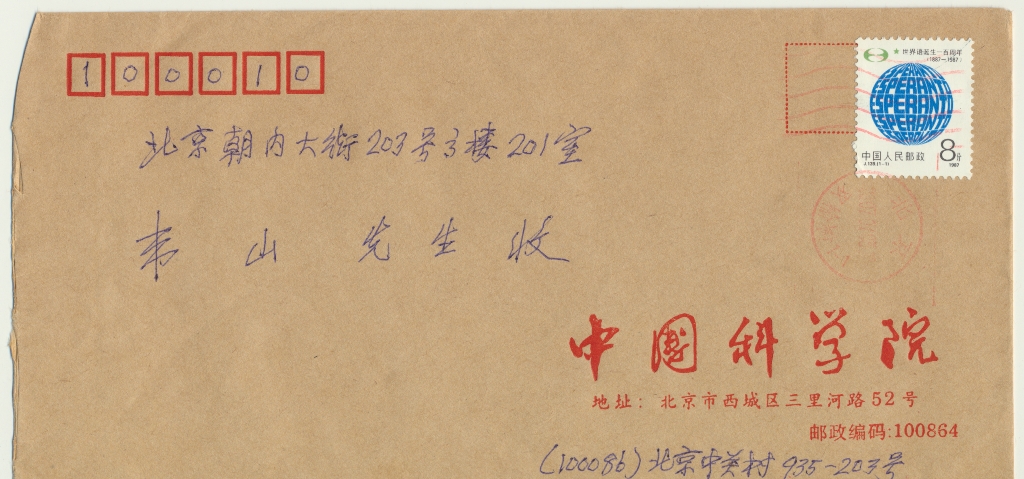 100010
★世界语诞生一百周年
(1887-1987)
ESPERANTO
ESPERANTO
ESPERANTO
中国人民邮政 8分
J.139.(1-1) 1987
北京朝内大街203号3楼201室
韦山 先生 收
中国科学院
地址：北京市西城区三里河路52号
邮政编码:100864
(100086)北京中关村 935-203号